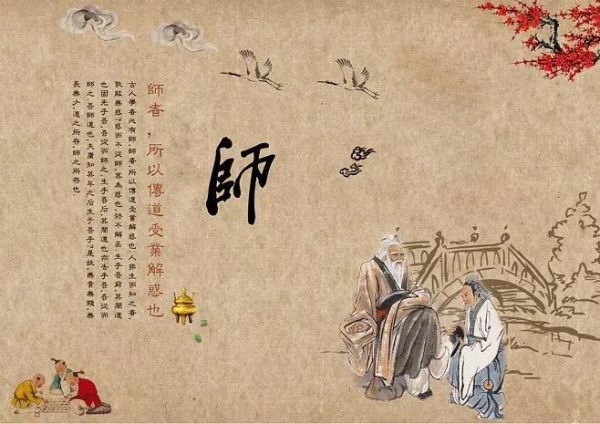 師
師者，所以傳道受業解惑也
古人學者必有師，師者，所以傳道受業解惑也.人非生而知之者，
孰能無惑？惑而不從師，其為惑也，終不解矣.生乎吾前，其聞道
也固先乎吾，吾從而師之，生乎吾后，其聞道也亦先乎吾，吾從而
師之，吾師道也，夫庸知其年之后生乎吾乎？是故，無貴無賤，無
長無少，道之所存，師之所存也.